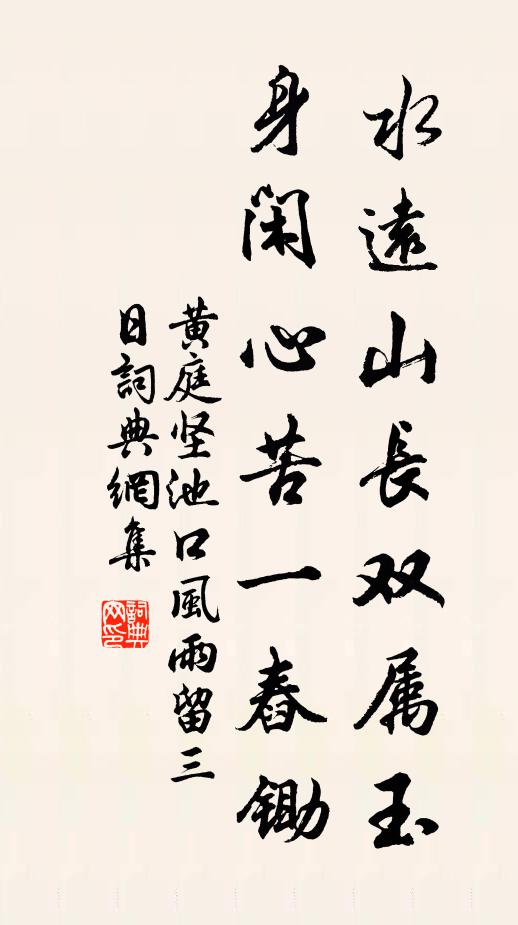 水遠山長双属玉
身閑心苦一舂鋤
黄庭坚池口風雨留三
日詞典網集
詞典网印